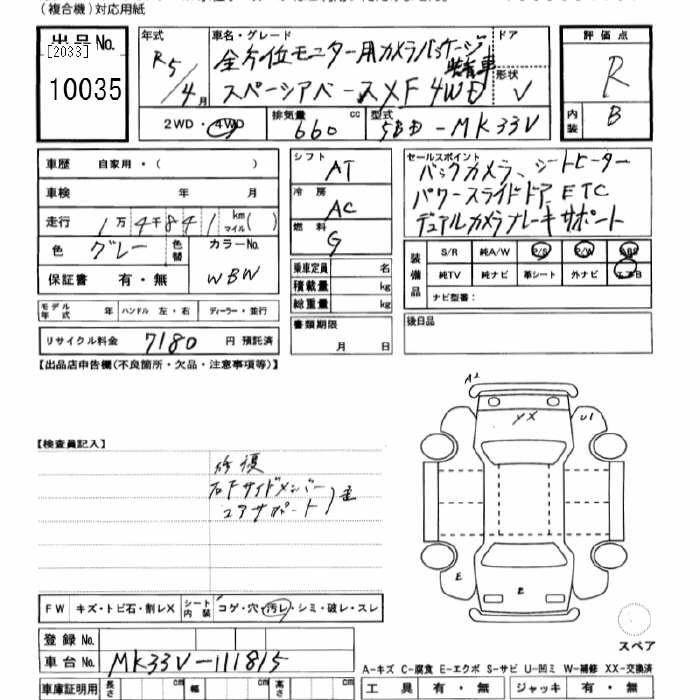 (複合機)対応用紙
出品No.
[2033]
10035
年式
R5/4月
車名・グレード
全方位モニター用カメラパッケージ装着車
スペーシアベース XF 4WD
ドア
形状
V
評価点
R
内装
B
2WD・4WD
排気量
660 cc
型式
5BD-MK33V
車歴 自家用・( )
車検 年 月
走行 1万4千841 km マイル( )
色 グレー 色替
カラーNo.
WBW
保証書 有・無
モデル年式 年 ハンドル 左・右 ディーラー・並行
リサイクル料金 7180 円 預託済
シフト
AT
冷房
AC
燃料
G
乗車定員 名
積載量 kg
総重量 kg
書類期限
月 日
セールスポイント
バックカメラ、シートヒーター
パワースライドドア ETC
デュアルカメラブレーキサポート
装備品
S/R 純A/W P/S P/W ABS
純TV 純ナビ 革シート 外ナビ エアB
ナビ型番:
後日品
【出品店申告欄(不良箇所・欠品・注意事項等)】
【検査員記入】
修復
右Fサイドメンバー
コアサポート
A2
YX
U1
E
E
スペア
FW キズ・トビ石・割レX シート内装 コゲ・穴・汚レ・シミ・破レ・スレ
登録No.
車台No. MK33V-111815
車庫証明用 長さ cm 幅 cm 高さ cm
A-キズ C-腐食 E-エクボ S-サビ U-凹ミ W-補修 XX-交換済
工具 有・無 ジャッキ 有・無